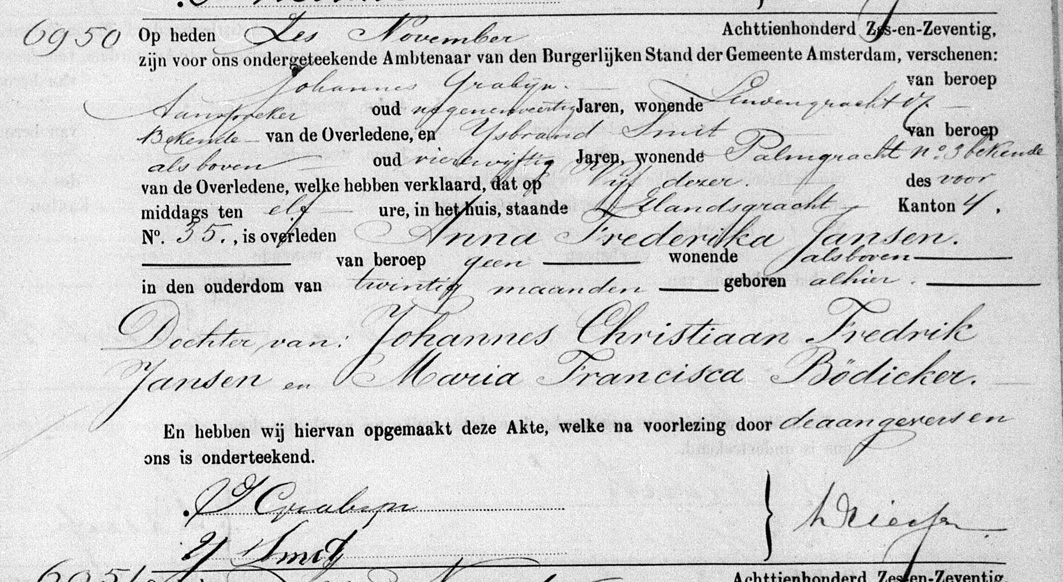 6950 Op heden Zes November Achttienhonderd Zes-en-Zeventig,
zijn voor ons ondergeteekende Ambtenaar van den Burgerlijken Stand der Gemeente Amsterdam, verschenen:
Johannes Grabijn. van beroep
Aanspreker oud negenenveertig Jaren, wonende Leidengracht
Bekende van de Overledene, en IJsbrand Smit van beroep
alsboven oud vierenvijftig Jaren, wonende Palmgracht no. 3 bekende
van de Overledene, welke hebben verklaard, dat op vijf dezer. des voor
middags ten elf ure, in het huis, staande Elandsgracht Kanton 4.
No. 35., is overleden Anna Frederika Jansen.
van beroep geen wonende alsboven
in den ouderdom van twintig maanden geboren alhier.
Dochter van: Johannes Christiaan Fredrik
Jansen en Maria Francisca Bödicker.
En hebben wij hiervan opgemaakt deze Akte, welke na voorlezing door de aangevers en
ons is onderteekend.
J Grabijn
IJ Smit
6951
Achttienhonderd Zes-en-Zeventig,